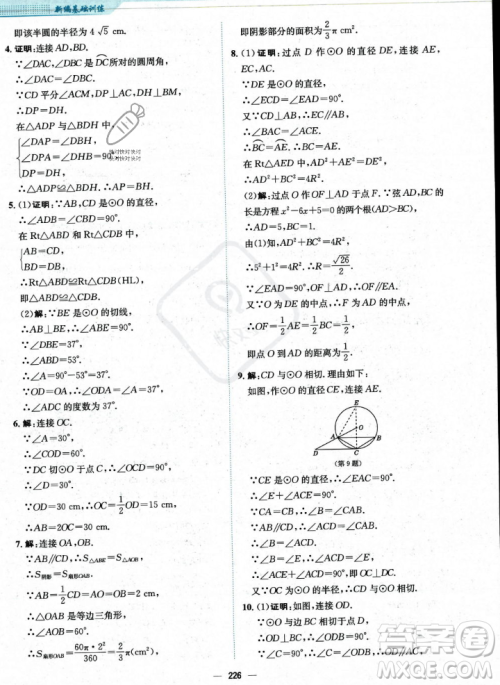 新编基础训练
即该半圆的半径为 4√5 cm.
4. 证明:连接 AD,BD.
∵∠ADC,∠BDC是D͡C所对的圆周角,
∴∠ADC=∠BDC.
∵CD 平分∠ACM,DP⊥AC,DH⊥CM,
∴DP=DH.
在△ADP 与△BDH 中,
∠ADP=∠BDH,
∠DPA=∠DHB=90°,
DP=DH,
∴△ADP≌△BDH.
5. (1)证明:∵AB,CD 是直径,
∴∠ADB=∠CBD=90°.
在 Rt△ABD 和 Rt△CDB 中,
AB=CD,
BD=DB,
∴Rt△ABD≌Rt△CDB(HL).
(2)解:∵BE 是⊙O 的切线,
∴AB⊥BE,∴∠ABE=90°.
∵∠DBE=37°,
∴∠ABD=53°.
∴∠A=90°-53°=37°.
∵OD=OA,∴∠ODA=37°.
∴∠ADC 的度数为 37°.
6. 解:连接 OC.
∵∠A=30°,
∴∠COD=60°.
∵DC 切⊙O 于点 C,
∴∠OCD=90°.
∴∠D=30°.
∵OD=30 cm,
∴OC=1/2 OD=15 cm,
∴AB=2OC=30 cm.
7. 解:连接 OA,OB.
∵AB∥CD,∴S△ABD=S△OAB,
∴S阴影=S扇形OAB.
∵AB=1/2 CD=AO=OB=2 cm,
∴△OAB 是等边三角形,
∴∠AOB=60°.
∴S扇形OAB=60π·2²/360=2/3π(cm²).
即阴影部分的面积为 2/3π cm².
8. (1)证明:过点 O 作⊙O 的直径 DE,连接 AE,CE.
∵DE 是⊙O 的直径,
∴∠ECD=∠EAD=90°,
∴CE⊥CD.
∵AB⊥CD,∴AB∥CE.
∴B͡C=A͡E,∴BC=AE.
在 Rt△AED 中,AD²+AE²=DE²,
∴AD²+BC²=4R².
(2)解:过点 O 作 OF⊥AD.∵弦 AD,BC 的长是方程 x²-6x+5=0 的两个根(AD>BC),
∴AD=5,BC=1.
由(1)知,AD²+BC²=4R²,
∴5²+1²=4R²,∴R=√26/2.
又∵O 为 ED 的中点,OF⊥AD,
∴OF=1/2 AE=1/2 BC=1/2,
即点 O 到 AD 的距离为 1/2.
9. 解:CD 与⊙O 相切. 理由如下:
如图,作⊙O 的直径 CE,连接 AE.
E
O
A
B
D
C
(第 9 题)
∵CE 是⊙O 的直径,∴∠EAC=90°,
∴∠E+∠ACE=90°.
∵CA=CB,∴∠B=∠CAB.
∵AB∥CD,
∴∠ACD=∠CAB.
∵∠B=∠E,∴∠ACD=∠E,
∴∠ACE+∠ACD=90°,
即∠DCO=90°,
∴OC⊥CD,∴CD 与⊙O 相切.
10. (1)证明:如图,连接 OD.
∵OB=OD,
∴∠ODB=∠B.
又∵∠A=∠B=30°,
∴∠A=∠ODB,
∴DO∥AC.
226
答案圈
MXQE.COM